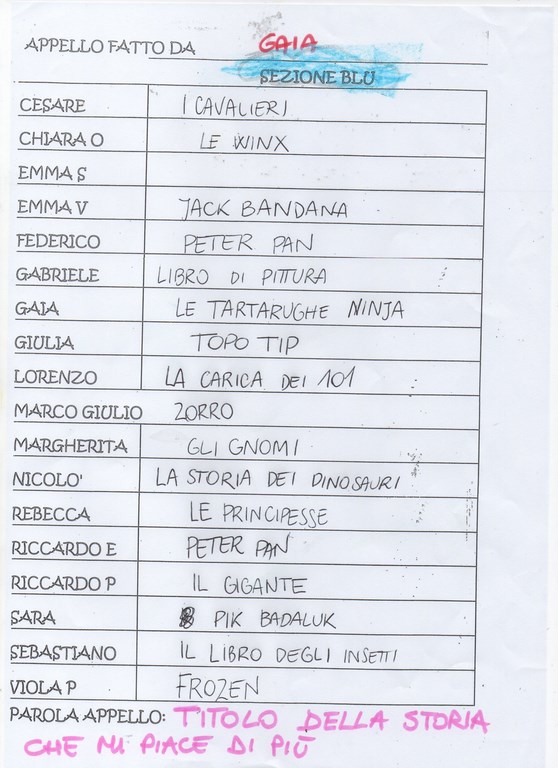 APPELLO FATTO DA GAIA
SEZIONE BLU
CESARE I CAVALIERI
CHIARA O LE WINX
EMMA S
EMMA V JACK BANDANA
FEDERICO PETER PAN
GABRIELE LIBRO DI PITTURA
GAIA LE TARTARUGHE NINJA
GIULIA TOPO TIP
LORENZO LA CARICA DEI 101
MARCO GIULIO ZORRO
MARGHERITA GLI GNOMI
NICOLO' LA STORIA DEI DINOSAURI
REBECCA LE PRINCIPESSE
RICCARDO E PETER PAN
RICCARDO P IL GIGANTE
SARA PIK BADALUK
SEBASTIANO IL LIBRO DEGLI INSETTI
VIOLA P FROZEN
PAROLA APPELLO: TITOLO DELLA STORIA
CHE MI PIACE DI PIÙ